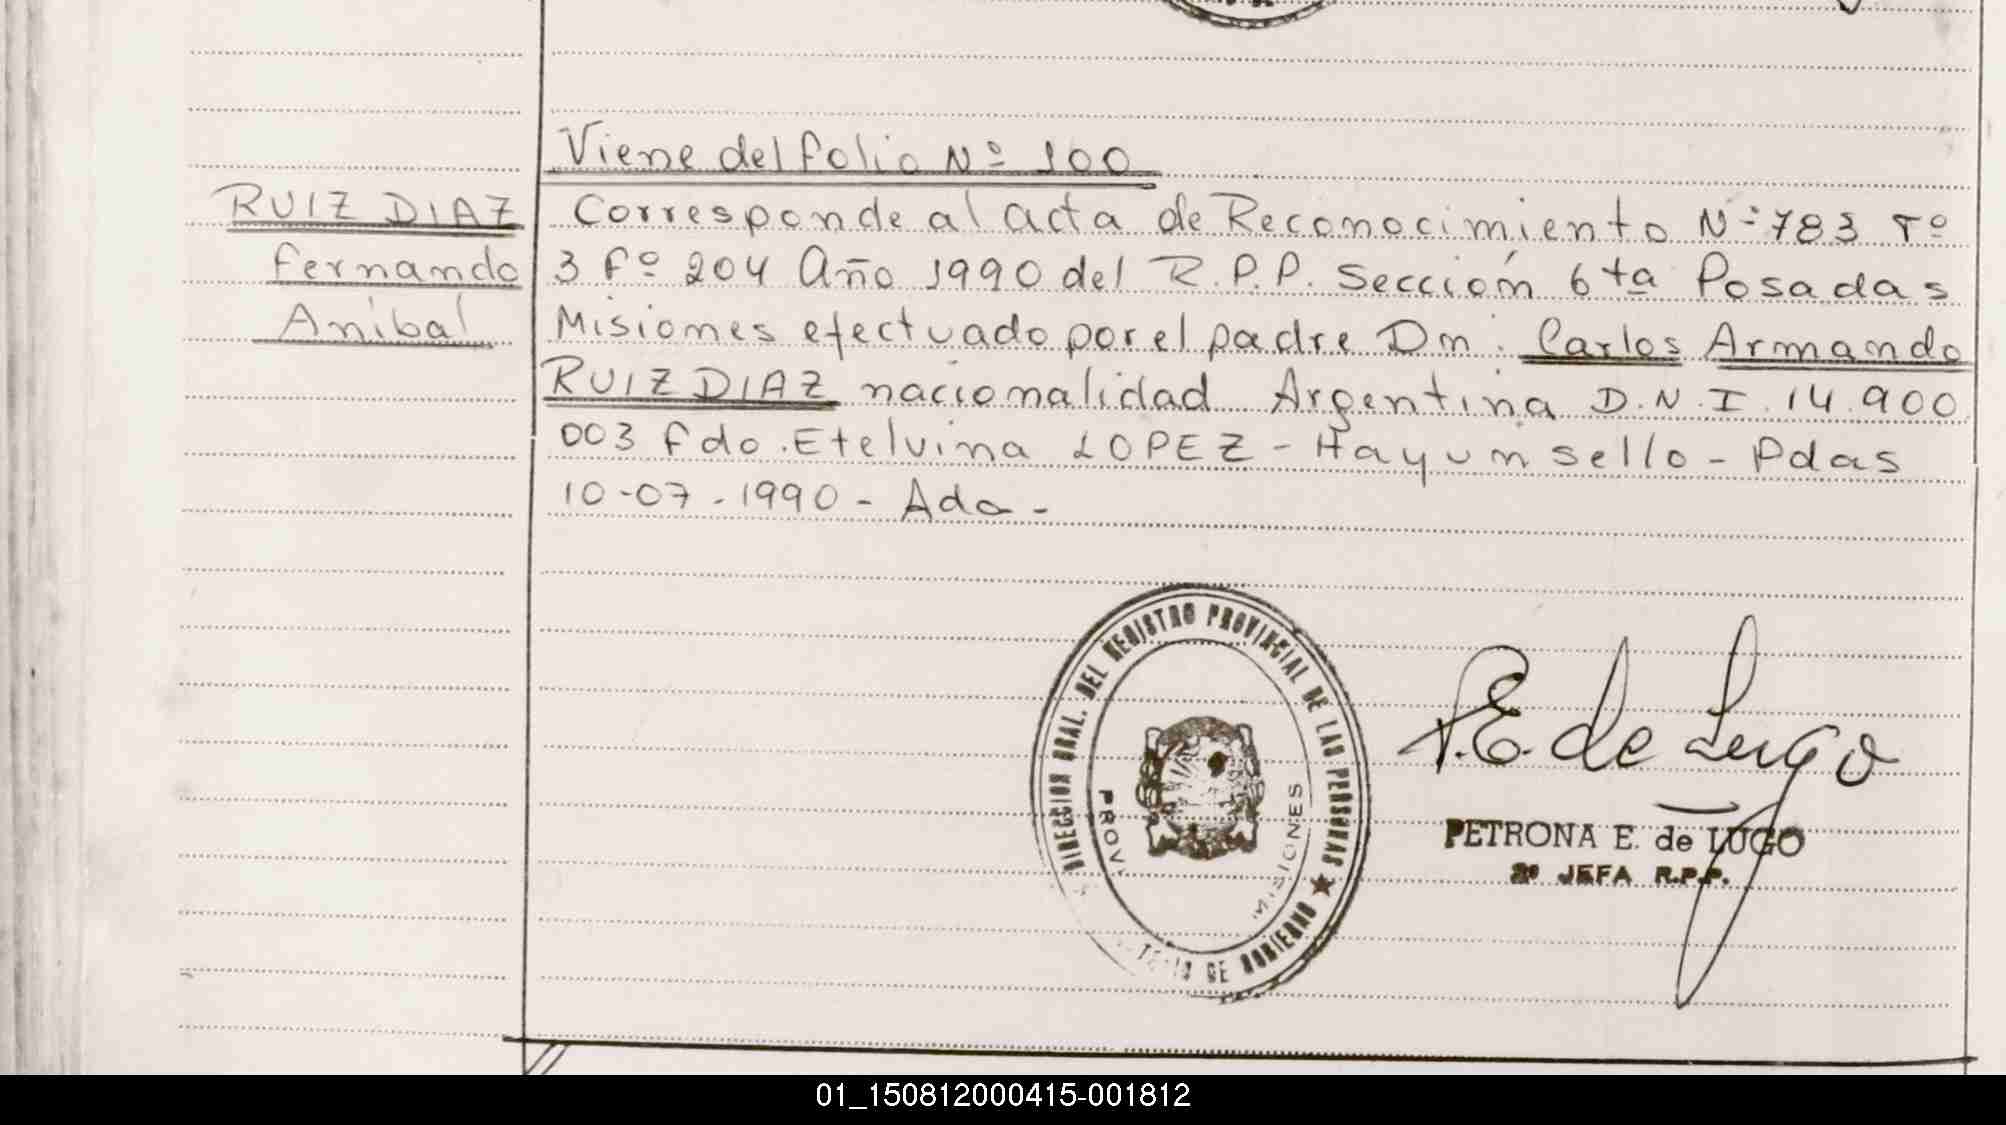 Viene del folio Nº 100
RUIZ DIAZ
Fernando
Anibal
Corresponde al acta de Reconocimiento Nº 783 Tº
3 Fº 204 Año 1990 del R.P.P. Sección 6ta Posadas
Misiones efectuado por el padre Dn. Carlos Armando
RUIZ DIAZ nacionalidad Argentina D.N.I. 14.900
003 fdo. Etelvina LOPEZ - Hay un sello - Pdas
10-07-1990 - Ada -
DIRECCION GRAL. DEL REGISTRO PROVINCIAL DE LAS PERSONAS ★
DE GOBIERNO
PROV.
MISIONES
P.E. de Lugo
PETRONA E. de LUGO
2º JEFA R.P.P.
01_150812000415-001812